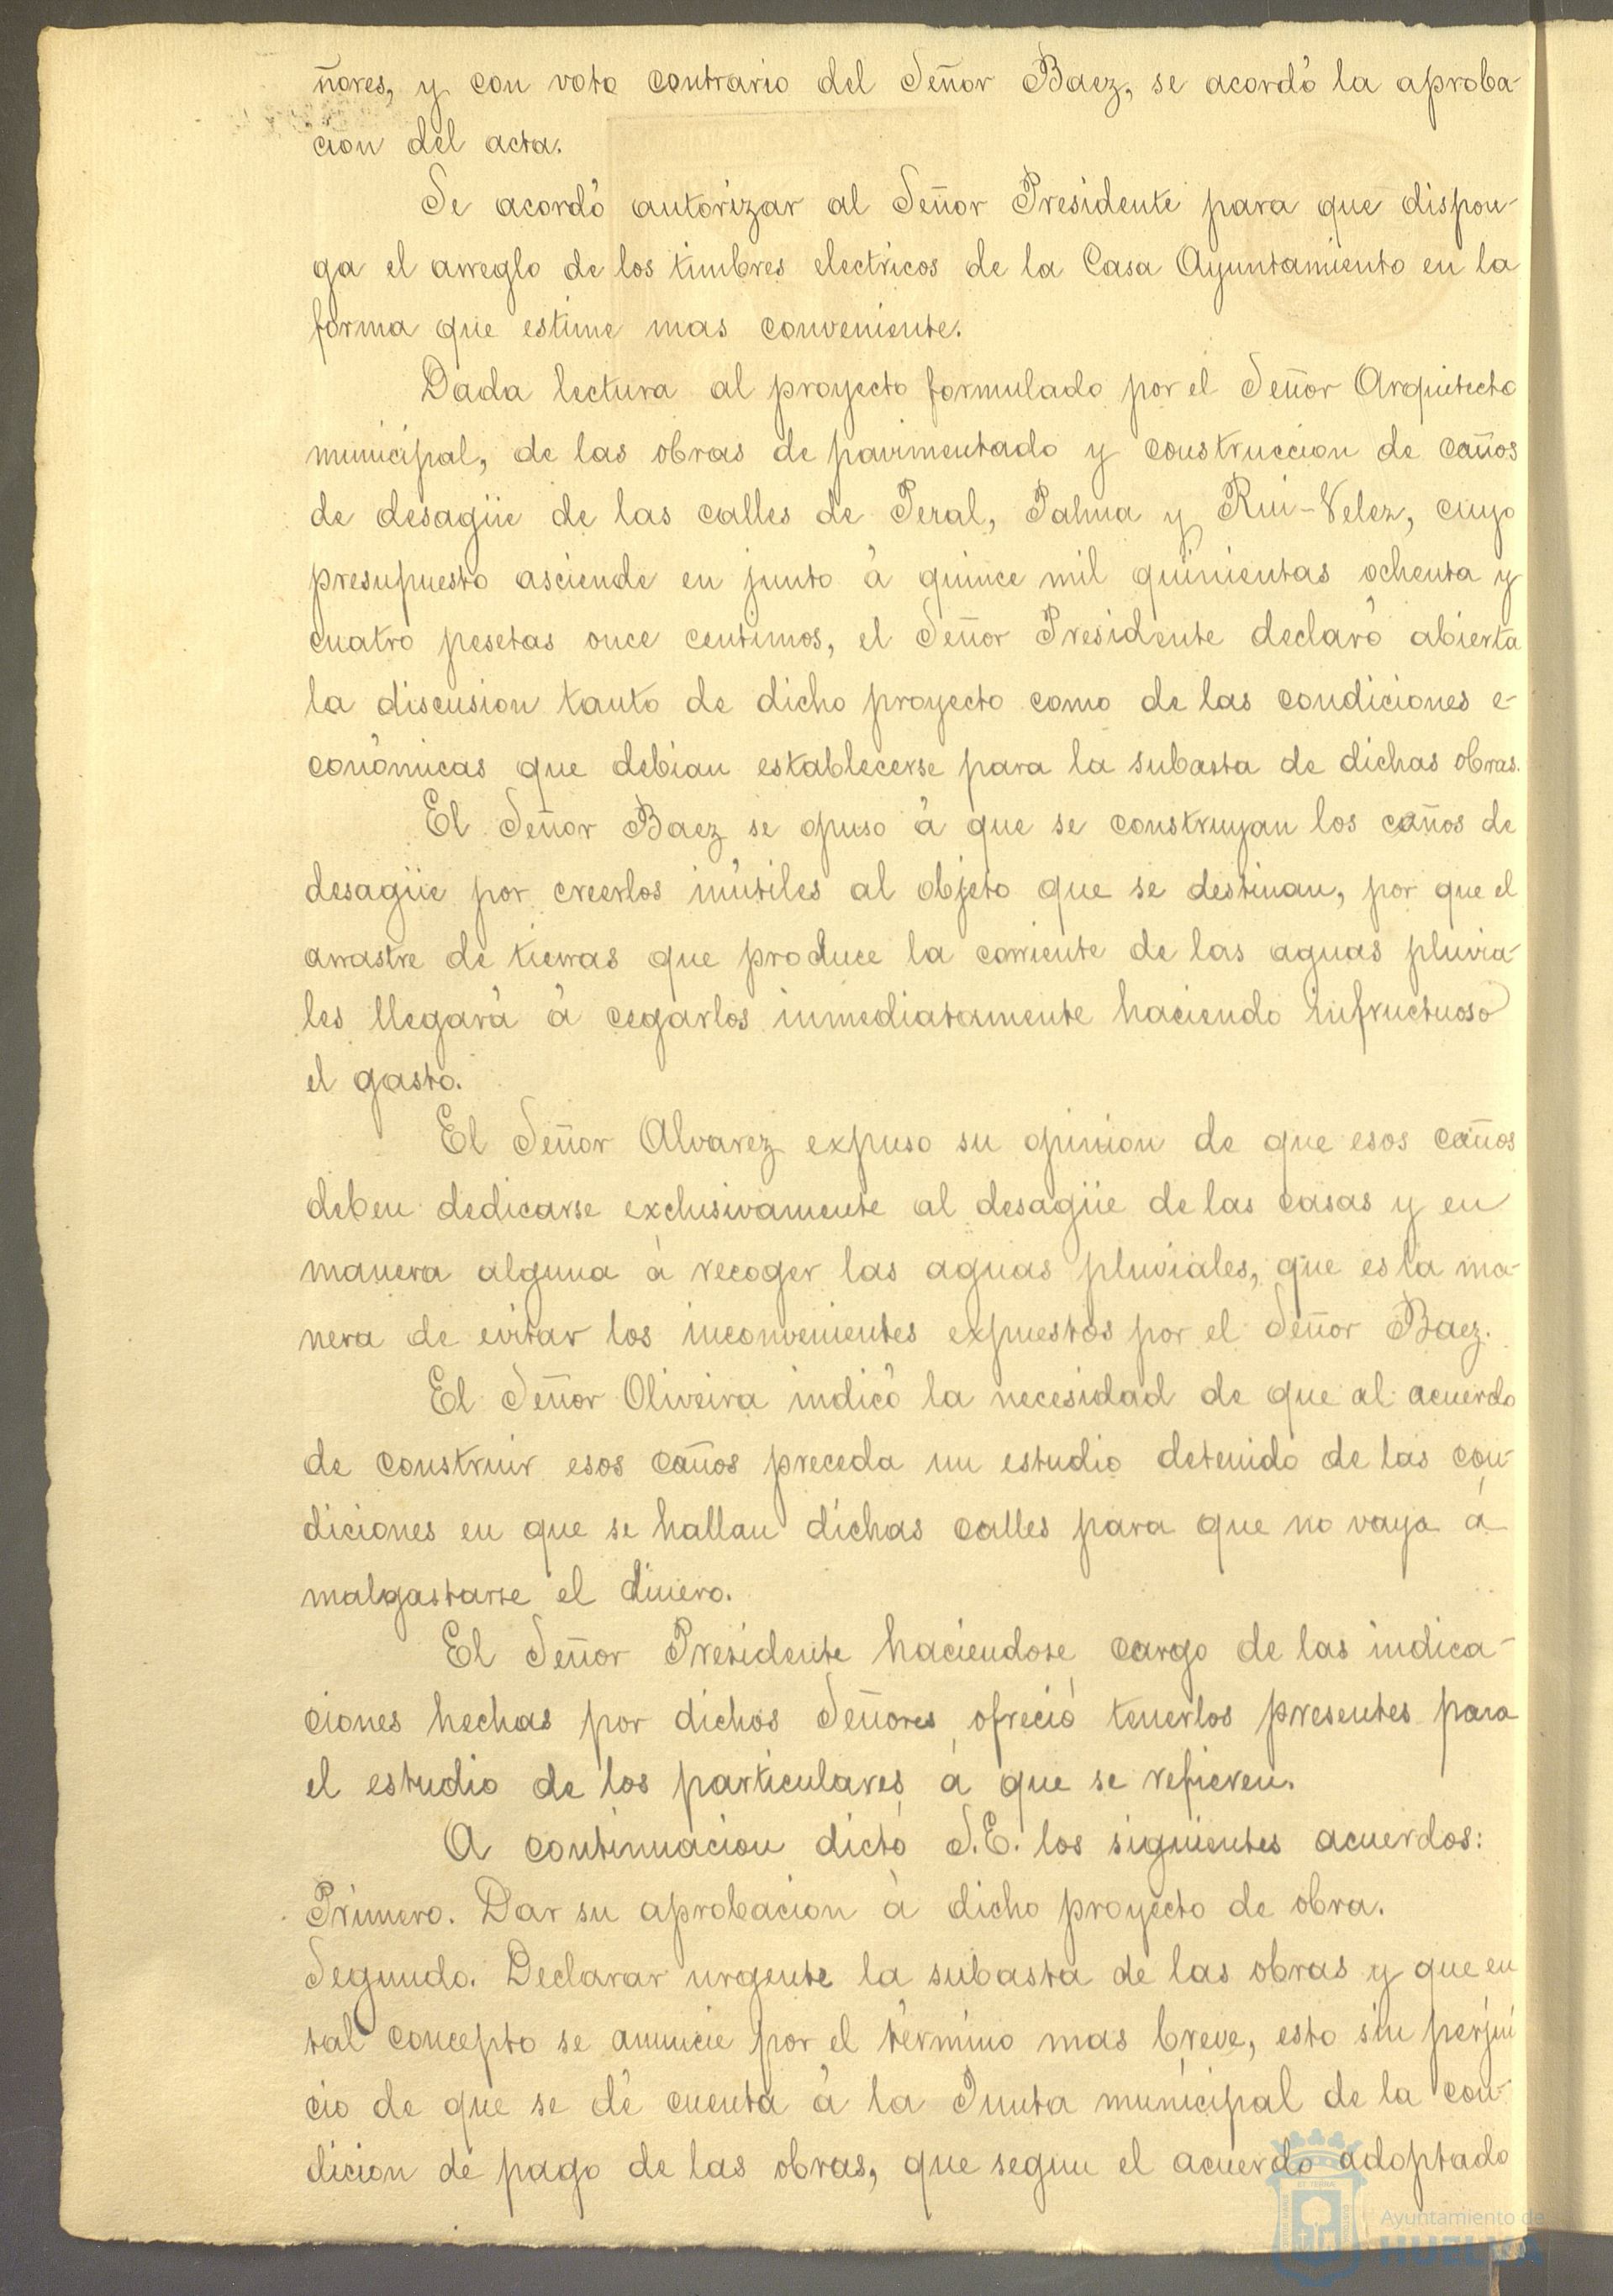 ñores, y con voto contrario del Señor Baez, se acordó la aproba-
cion del acta.
Se acordó autorizar al Señor Presidente para que dispon-
ga el arreglo de los timbres electricos de la Casa Ayuntamiento en la
forma que estime mas conveniente.
Dada lectura al proyecto formulado por el Señor Arquitecto
municipal, de las obras de pavimentado y construccion de caños
de desagüe de las calles de Peral, Palma y Rui-Velez, cuyo
presupuesto asciende en junto á quince mil quinientas ochenta y
cuatro pesetas once centimos, el Señor Presidente declaró abierta
la discusion tanto de dicho proyecto como de las condiciones e-
conómicas que debian establecerse para la subasta de dichas obras.
El Señor Baez se opuso á que se construyan los caños de
desagüe por creerlos inútiles al objeto que se destinan, por que el
arrastre de tierras que produce la corriente de las aguas pluvia-
les llegará á cegarlos inmediatamente haciendo infructuoso
el gasto.
El Señor Alvarez expuso su opinion de que esos caños
deben dedicarse exclusivamente al desagüe de las casas y en
manera alguna á recoger las aguas pluviales, que es la ma-
nera de evitar los inconvenientes expuestos por el Señor Baez.
El Señor Oliveira indicó la necesidad de que al acuerdo
de construir esos caños preceda un estudio detenido de las con-
diciones en que se hallan dichas calles para que no vaya á
malgastarse el dinero.
El Señor Presidente haciendose cargo de las indica-
ciones hechas por dichos Señores, ofreció tenerlos presentes para
el estudio de los particulares á que se refieren.
A continuacion dictó S.E. los siguientes acuerdos:
Primero. Dar su aprobacion á dicho proyecto de obra.
Segundo. Declarar urgente la subasta de las obras y que en
tal concepto se anuncie por el término mas breve, esto sin perjui
cio de que se dé cuenta á la Junta municipal de la con-
dicion de pago de las obras, que segun el acuerdo adoptado
Ayuntamiento de
HUELVA